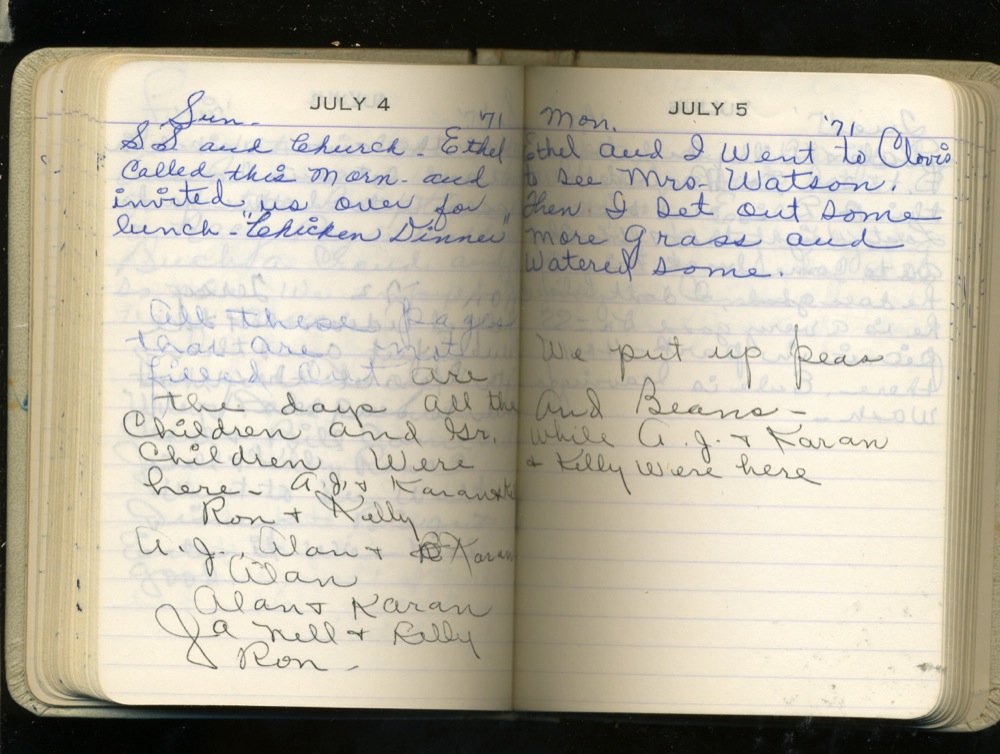 JULY 4
Sun. '71
S S and Church - Ethel
Called this Morn - and
invited us over for
lunch - "Chicken Dinner"
All these Pages
that are not
filled Out are
the days all the
Children and Gr.
Children Were
here - A.J. & Karan &
Ron + Kelly
A. J. Alan + Karan
Alan
Alan + Karan
Ja Nell + Kelly
Ron -
JULY 5
Mon. '71
Ethel and I Went to Clovis
to see Mrs. Watson.
Then I Set out some
more grass and
Watered some.
We put up peas
And Beans -
While A. J. + Karan
+ Kelly were here